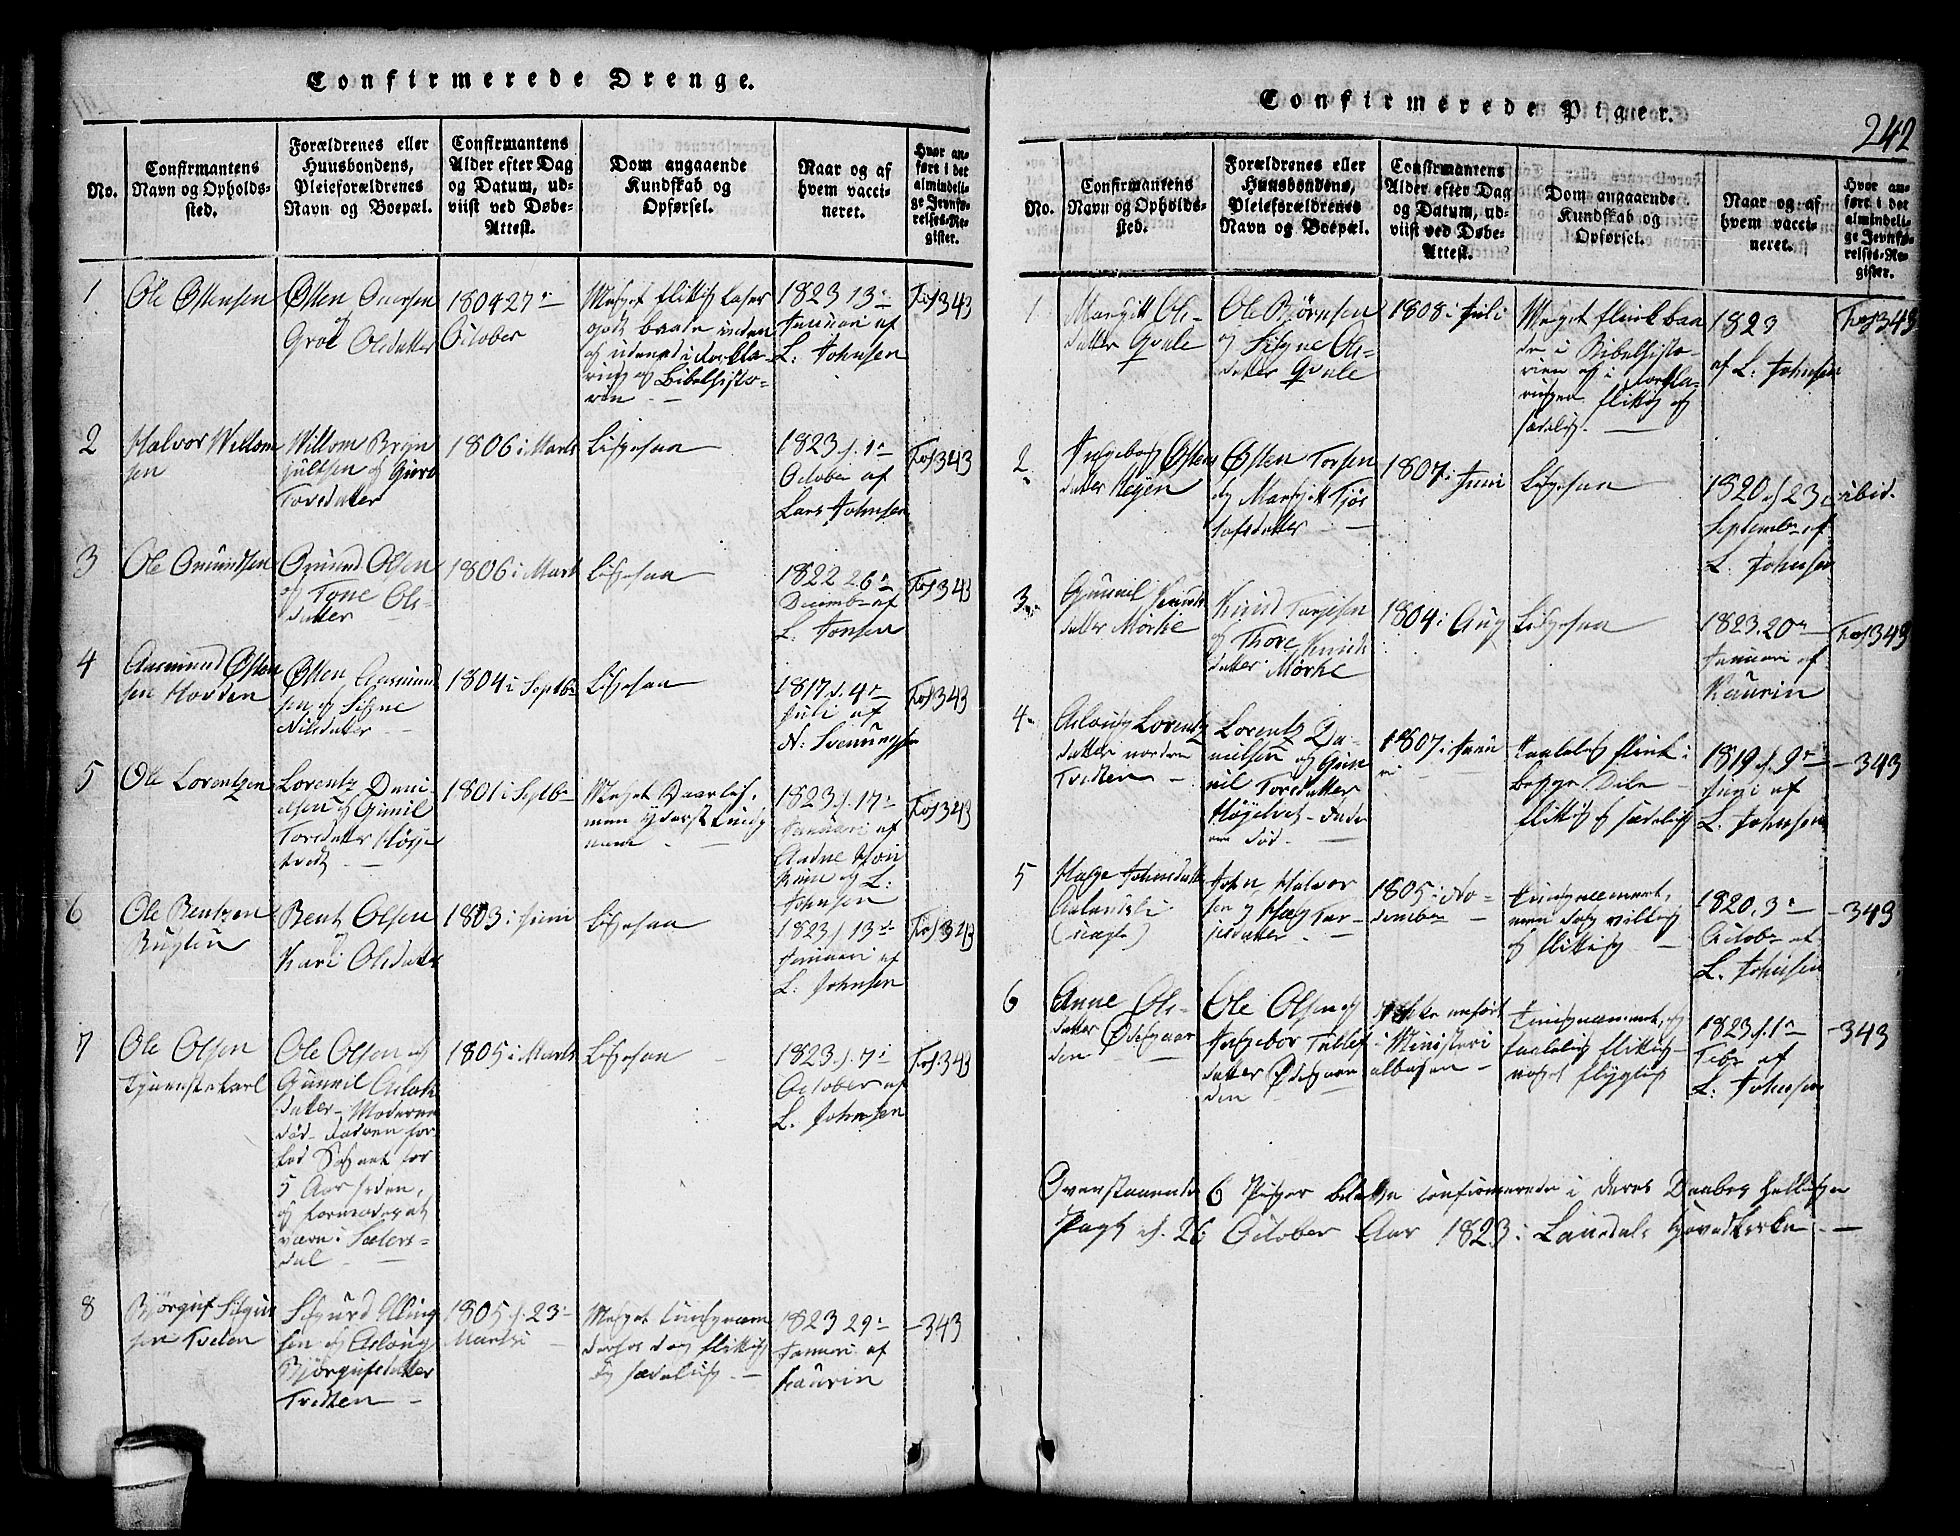 Confirmerede Drenge.
No.
Confirmantens
Navn og Opholds-
sted.
Forældrenes eller
Huusbondens,
Pleieforældrenes
Navn og Boepæl.
Confirmantens
Alder efter Dag
og Datum, ud-
viist ved Døbe-
Attest.
Dom angaaende
Kundskab og
Opførsel.
Naar og af
hvem vacci-
neret.
Hvor an-
ført i det
almindeli-
ge Jevnfø-
relses-Re-
gister.
1
Ole Østensen
Østen
Groe Olsdatter
1804 27
October
Meget flittig læser
godt baade inden
og udenad i Forkla-
ring og Bibelhisto-
rien
1823 13
Januari af
L. Johnsen
Fol 343
2
Halvor Willom
sen
Willom Bryn
julfsen og
Toresdatter
1806 i Marts
Ligesaa
1823 d. 1
October af
Lars Johnsen
Fol 343
3
Ole Omundsen
Omund Olsen
og Tone Ols-
datter
1806 i Marts
Ligesaa
1822 26
Decembr af
L. Jonsen
Fol 343
4
Aasmund Østen
sen Hovden
Østen Aasmund
sen og Signe
Nilsdatter
1804 i Septbr
Ligesaa
1817 d. 4
Juli af
N: Svenungsen
Fol 343
5
Ole Lorentzen
Lorentz Dani
elsen og Gunil
Toresdatter
1801 i Septbr
Meget
men yderst
1823 d. 17
Januari af
L:
Johnsen
Fol 343
6
Ole Bentzen
Bent Olsen
og
Kari Olsdatter
1803 i Juni
Ligesaa
1823 d. 13
Januari af
L: Johnsen
Fol 343
7
Ole Olsen
Tjenestekarl
Ole Olsen og
Gunvil
datter - Moderen
død - Faderen for-
lod Sognet for
5 Aar siden,
og formodes at
være i Sæters-
dal
1805 i Marts
Ligesaa
1823 d. 7
October af
L. Johnsen
Fol 343
8
Bjørguf Sigur
sen Tveten
Sigurd Elling
sen og Aslaug
Bjørgufsdatter
Tvetten
1805 d. 23
Martsi
Meget tungnæm
flittig
og sædelig
1823 29
Januari af
Kaurin
-343
Confirmerede Piger.
242
No.
Confirmantens
Navn og Opholds-
sted.
Forældrenes eller
Huusbondens,
Pleieforældrenes
Navn og Boepæl.
Confirmantens
Alder efter Dag
og Datum, ud-
viist ved Døbe-
Attest.
Dom angaaende
Kundskab og
Opførsel.
Naar og af
hvem vacci-
neret.
Hvor an-
ført i det
almindeli-
ge Jevnfø-
relses-Re-
gister.
1
Margit Ols-
datter Qvale
Ole Bjørnsen
og Signe Ols-
datter Qvale
1808 i Juli
Meget flink baa
de i Bibelhisto-
rien og i Forkla-
ringen flittig og
sædelig
1823
af L. Johnsen
Fol 343
2
Ingeborg Østens
datter
Østen Torsen
og Margit
datter
1807 i Juni
Ligesaa
1820 d. 23
September af
L. Johnsen
ibid.
3
Gunnil Knuds
datter Mørke
Knud Torjesen
og Thore Knuds
datter Mørke
1804 i Aug
Ligesaa
1823. 20
Januari af
Kaurin
Fol 343
4
Aslaug Lorentz
datter
Tvetten
Lorentz Da-
nielsen og Gun
nil Toresdatter
- Fade
ren død.
1807 i
Saadelig flink i
begge Dele
flittig og sædelig
1819 d. 9
af
L. Johnsen
-343
5
Hæge Johnsdatter
John Halvor
sen og Hæg Tar-
jesdatter
1805 i No-
vember
Tungnæmmet,
men dog villig
og flittig
1820. 3
Octobr af
L. Johnsen
-343
6
Anne Ols-
datter Ødegaar
den
Ole Olsen og
Ingebor
datter Ødegaar
den
ikke anført
i Ministeri
albogen
Tungnæmmet, og
flittig
1823 d. 1
Febr af
L. Johnsen
-343
Overstaaende 6 Piger bleve confirmerede i deres Daabes hellige
Pagt d. 26 October Aar 1823 i Laurdals Hovedkirke